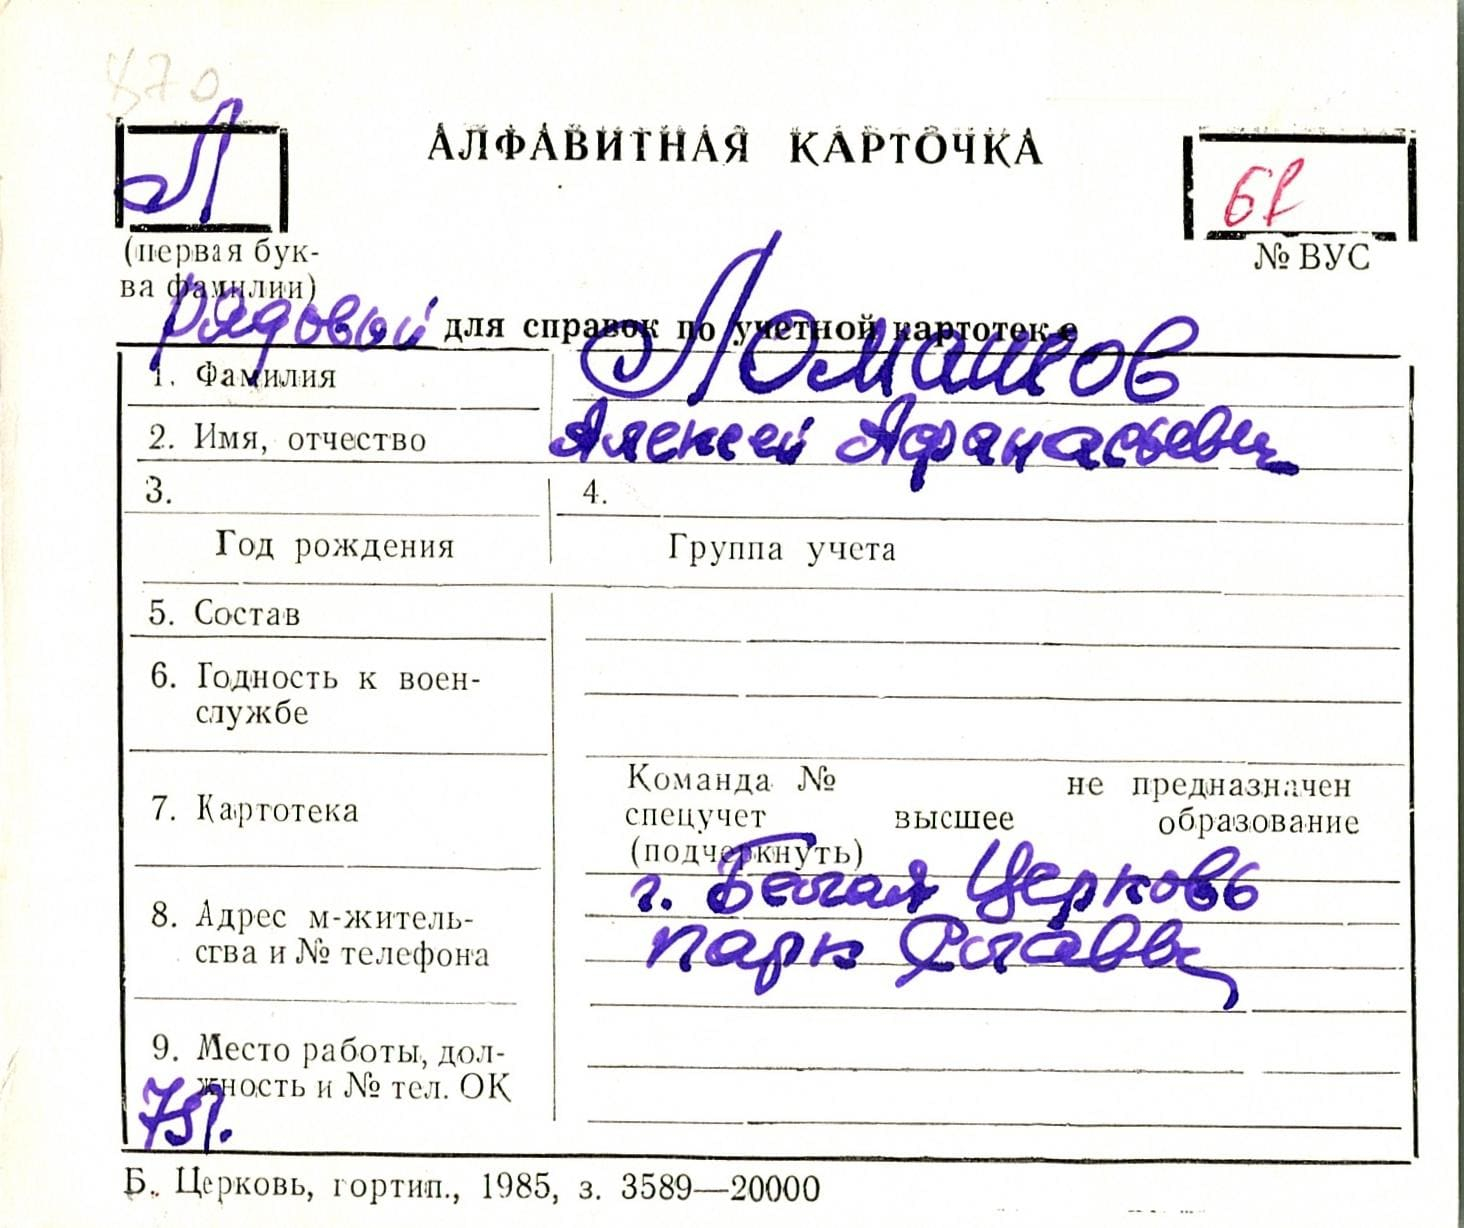 870
Л
АЛФАВИТНАЯ КАРТОЧКА
(первая бук-
ва фамилии)
№ ВУС
рядовый
для справок по учетной картотеке
1. Фамилия
2. Имя, отчество Алексей Афанасьевич
3. 4.
Год рождения Группа учета
5. Состав
6. Годность к воен-
службе
7. Картотека
Команда № не предназначен
спецучет высшее образование
(подчеркнуть)
8. Адрес м-житель-
ства и № телефона
г. Белая Церковь
парк
9. Место работы, дол-
жность и № тел. ОК
Б. Церковь, гортип., 1985, з. 3589—20000